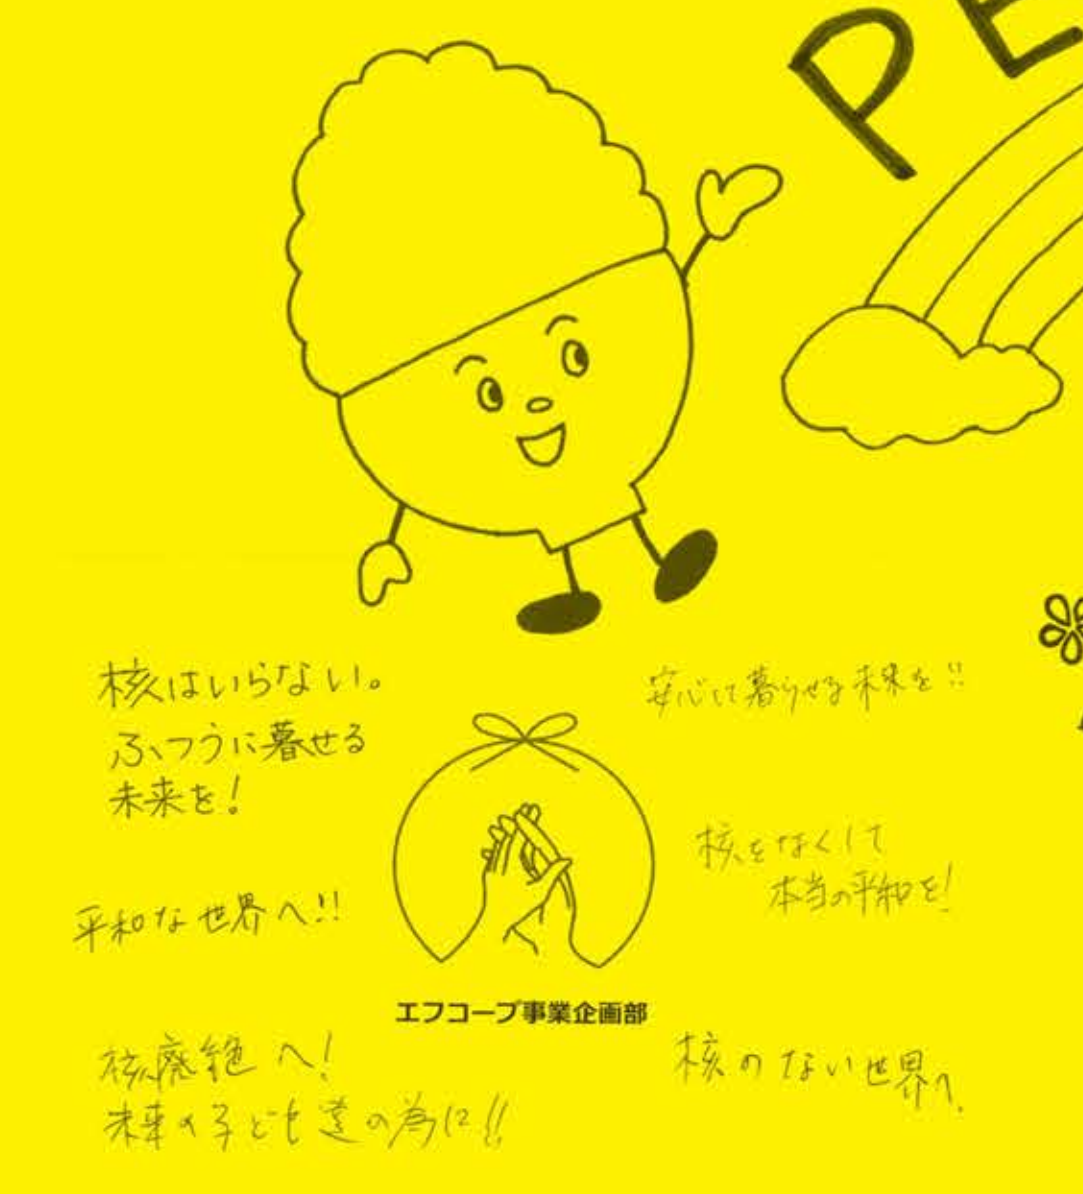 PE
核はいらない。
ふつうに暮せる
未来を!
安心して暮らせる未来を!!
核をなくして
本当の平和を!
平和な世界へ!!
エフコープ事業企画部
核廃絶へ!
未来の子ども達の為に!!
核のない世界へ